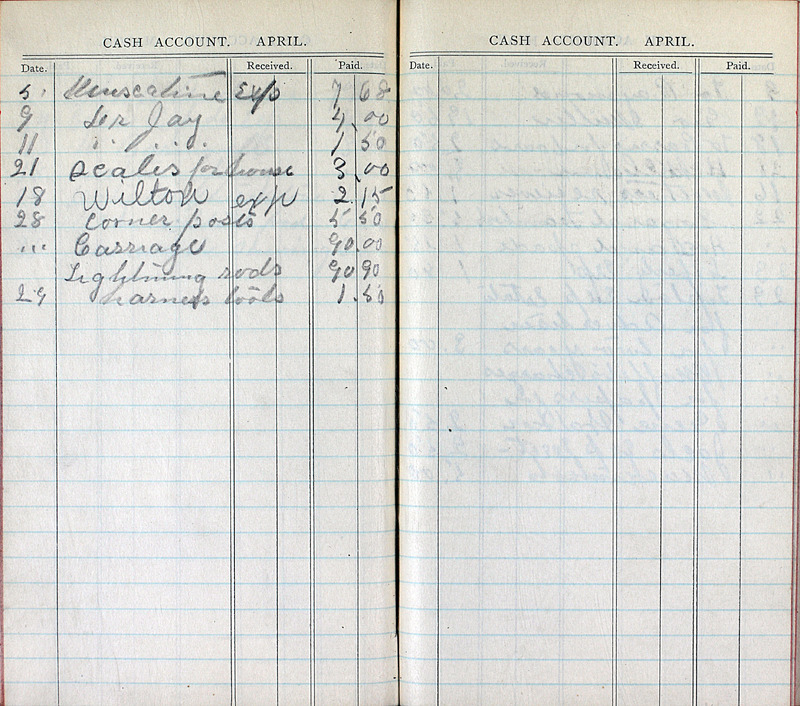 CASH ACCOUNT. APRIL.
Date. Received. Paid.
5. Muscatine Exp 7 68
9 Jay 4.00
11 " " " " 1 50
21 Scales for house 3.00
18 Wilton exp 2.15
28 Corner posts 5 50
... Carriage 90.00
Lightning rods 90 90
29 harness tools 1.50
CASH ACCOUNT. APRIL.
Date. Received. Paid.